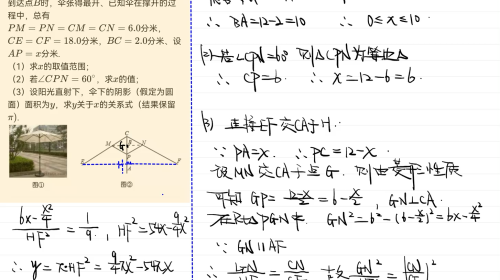 到达点B时，伞张得最开．已知伞在撑开的过
程中，总有
PM = PN = CM = CN = 6.0分米，
CE = CF = 18.0分米，BC = 2.0分米．设
AP = x分米．
（1）求x的取值范围；
（2）若∠CPN = 60°，求x的值；
（3）设阳光直射下，伞下的阴影（假定为圆
面）面积为y，求y关于x的关系式（结果保留
π）．
C
M
G
N
E
H
F
A
图①
图②
∴ BA=12-2=10 ∴ 0≤x≤10.
(2) 若∠CPN=60° 则△CPN为等边△
∴ CP=6. ∴ x=12-6=6.
(3) 连接EF交CA于H.
∵ PA=x. ∴ PC=12-x.
设MN交CA于点G. 则由菱形性质
可知 GP= (12-x)/2 =6-x/2, GN⊥CA.
在Rt△PGN中 GN²=6²-(6-x/2)²=6x-x²/4
∵ GN∥AF
(6x-x²/4)/HF² = 1/9. HF²=54x-9/4x²